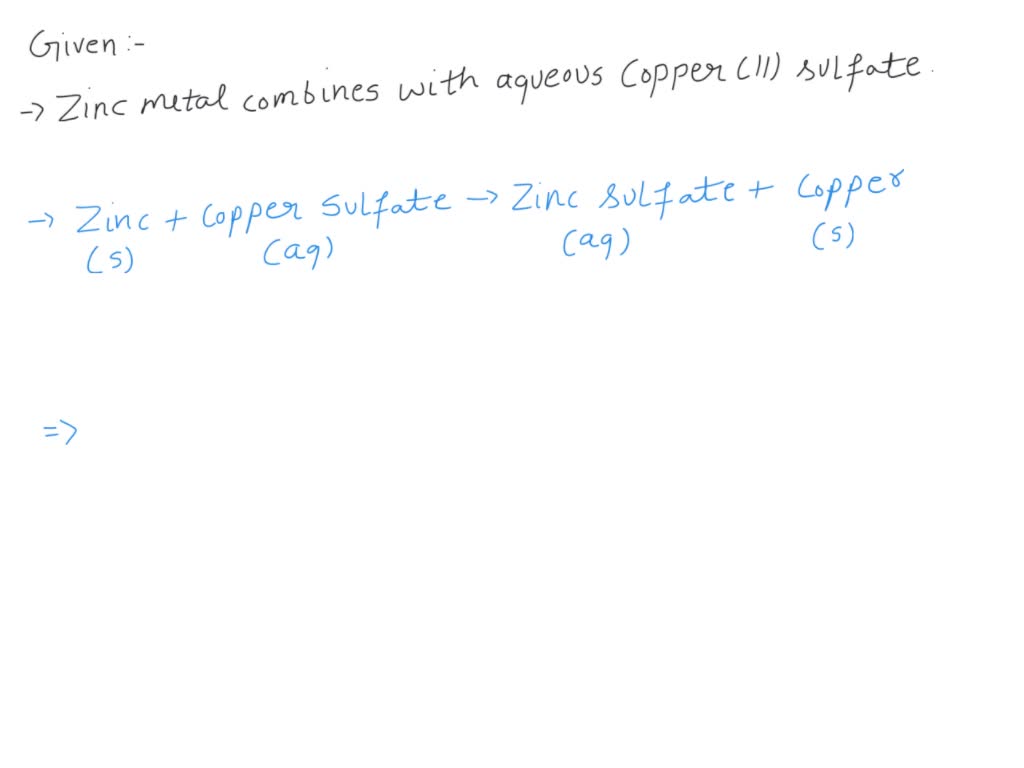 Given :-
-> Zinc metal combines with aqueous Copper (II) sulfate.
-> Zinc + Copper sulfate -> Zinc sulfate + Copper
(s) (aq) (aq) (s)
=>